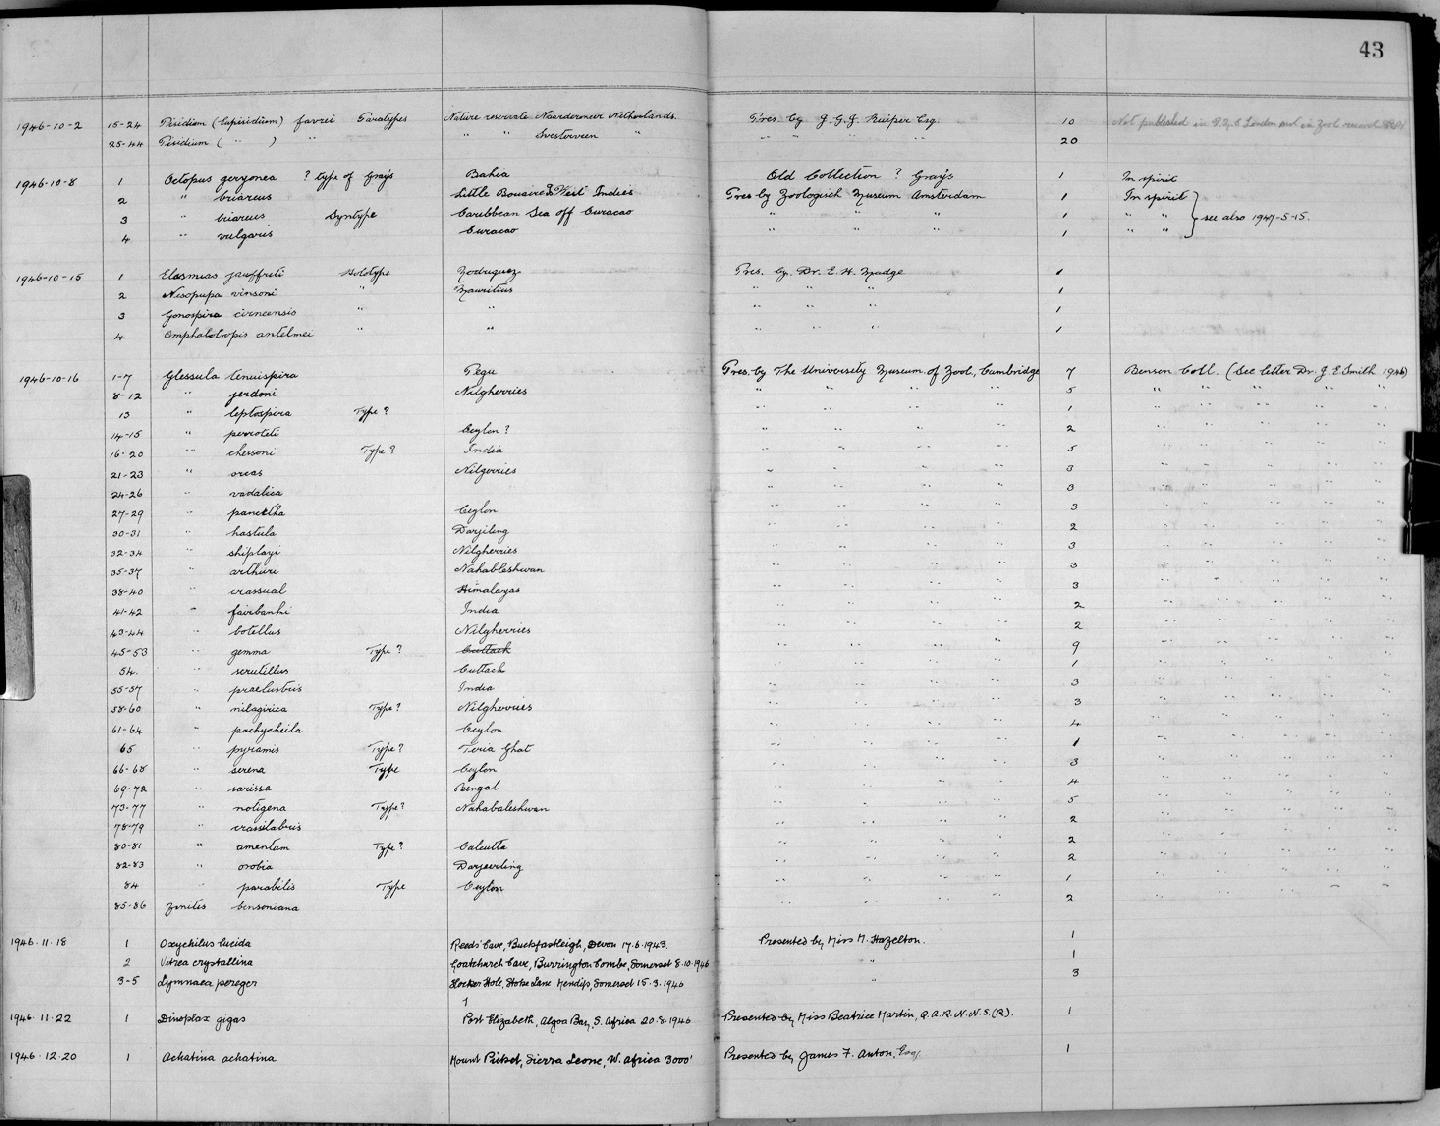 43
1946-10-2 15-24 Pisidium ( ) favrei Paratypes Nature reservate Naardermeer Netherlands. Pres. by J.G.J. Kuiper Esq. 10 Not published in London and in Zool record
25-44 Pisidium ( " ) " " " " 20
1946-10-8 1 Octopus geryonea ? type of Grays Bahia Old Collection ? Grays 1 In spirit
2 " briareus Little Bonaire Is West Indies Pres by Zoologisch Museum Amsterdam 1 In spirit
3 " briareus Syntype Caribbean Sea off Curacao " " " " 1 " " see also 1947-5-15.
4 " vulgaris Curacao " " " " 1 " "
1946-10-15 1 Elasmias jauffreti Holotype Rodriguez Pres. by. Dr. E. W. Madge 1
2 Nesopupa vinsoni " Mauritius " " " 1
3 Gonospira cirneensis " " " " " 1
4 Omphalotropis antelmei " " " " " 1
1946-10-16 1-7 Glessula tenuispira Pegu Pres. by The University Museum of Zool., Cambridge 7 Benson Coll. (See letter Dr. J E Smith 1946)
8-12 " jerdoni Nilgherries " " " " " 5 " " " " "
13 " leptospira Type ? " " " " " 1 " " " " "
14-15 " perroteti Ceylon ? " " " " " 2 " " " " "
16-20 " chessoni Type ? India " " " " " 5 " " " " "
21-23 " oreas Nilgerries " " " " " 3 " " " " "
24-26 " vadalica " " " " " 3 " " " " "
27-29 " panaetha Ceylon " " " " " 3 " " " " "
30-31 " hastula Darjiling " " " " " 2 " " " " "
32-34 " shiplayi Nilgherries " " " " " 3 " " " " "
35-37 " arthuri Mahableshwan " " " " " 3 " " " " "
38-40 " crassula Himalayas " " " " " 3 " " " " "
41-42 " fairbanki India " " " " " 2 " " " " "
43-44 " botellus Nilgherries " " " " " 2 " " " " "
45-53 " gemma Type ? Cuttack " " " " " 9 " " " " "
54. " scrutillus Cuttack " " " " " 1 " " " " "
55-57 " praelustris India " " " " " 3 " " " " "
58-60 " nilagirica Type ? Nilgherries " " " " " 3 " " " " "
61-64 " pachycheila Ceylon " " " " " 4 " " " " "
65 " pyramis Type ? Teria Ghat " " " " " 1 " " " " "
66-68 " serena Type Ceylon " " " " " 3 " " " " "
69-72 " sarissa Bengal " " " " " 4 " " " " "
73-77 " notigena Type ? Mahabaleshwan " " " " " 5 " " " " "
78-79 " crassilabris " " " " " 2 " " " " "
80-81 " amentum Type ? Calcutta " " " " " 2 " " " " "
82-83 " orobia Darjeerling " " " " " 2 " " " " "
84 " parabilis Type Ceylon " " " " " 1 " " " " "
85-86 Zonites bensoniana " " " " " 2 " " " " "
1946.11.18 1 Oxychilus lucida Reeds Cave, Buckfastleigh, Devon 17.6.1943. Presented by Miss M. Hazelton. 1
2 Vitrea crystallina Goatchurch Cave, Burrington Combe, Somerset 8.10.1946 " 1
3-5 Lymnaea pereger Hocker Hole, Stoke Lane Mendip, Somerset 15.3.1946 " 3
1946.11.22 1 Dinoplax gigas Port Elizabeth, Algoa Bay, S. Africa 20.8.1946 Presented by Miss Beatrice Martin, Q.A.R.N.N.S.(R). 1
1946.12.20 1 Achatina achatina Mount , Sierra Leone, W. Africa 3000' Presented by James F. Anton, Esq. 1